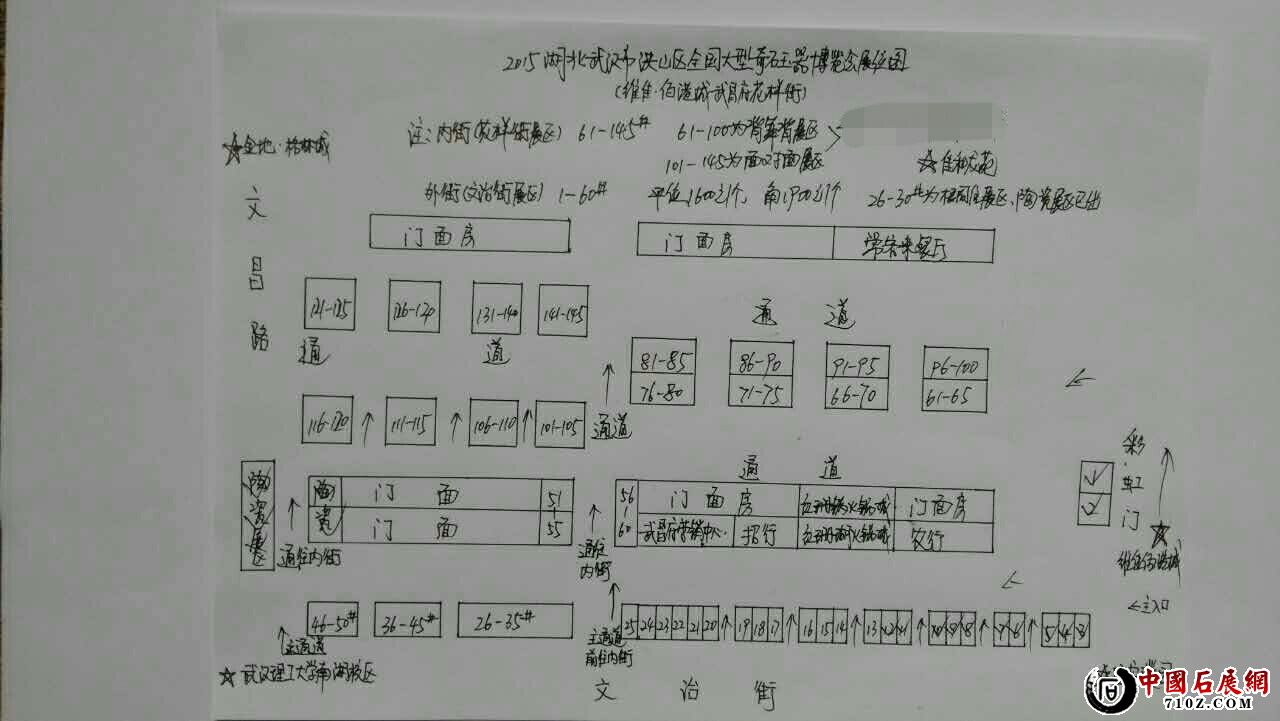 2015湖北武汉市洪山区全国大型奇石玉器博览会展位图
(维佳·佰港城武昌府花样街)
注:内街(花样街展区) 61-145# 61-100为背靠背展区
101-145为面对面展区
☆金地·格林城
☆佳和友苑
外街(文治街展区) 1-60# 平位1600元1个, 角1900元1个 26-30#为 展区、陶瓷展区已出
文昌路
门面房
门面房
常客来餐厅
121-125 126-130 131-140 141-145
通道
通道
81-85 86-90 91-95 96-100
76-80 71-75 66-70 61-65
116-120 111-115 106-110 101-105
通道
通道
彩虹门
陶瓷展区
陶瓷
门面
51
55
门面
56
|
60
门面房
火锅城
门面房
武昌府营销中心
招行
火锅城
农行
通往内街
通往内街
☆维佳佰港城
←主入口
46-50# 36-45# 26-35#
25 24 23 22 21 20 19 18 17 16 15 14 13 12 11 10 9 8 7 6 5 4 3
主通道
主通道
前往内街
☆武汉理工大学南湖校区
文治街
中國石展網
710Z.COM